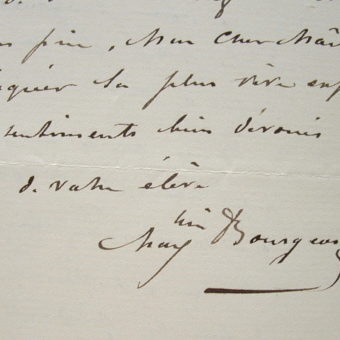 fin, Mon cher Maî
la plus vive exp
sentiments bien dévoués
d. votre élève
Bourgeois